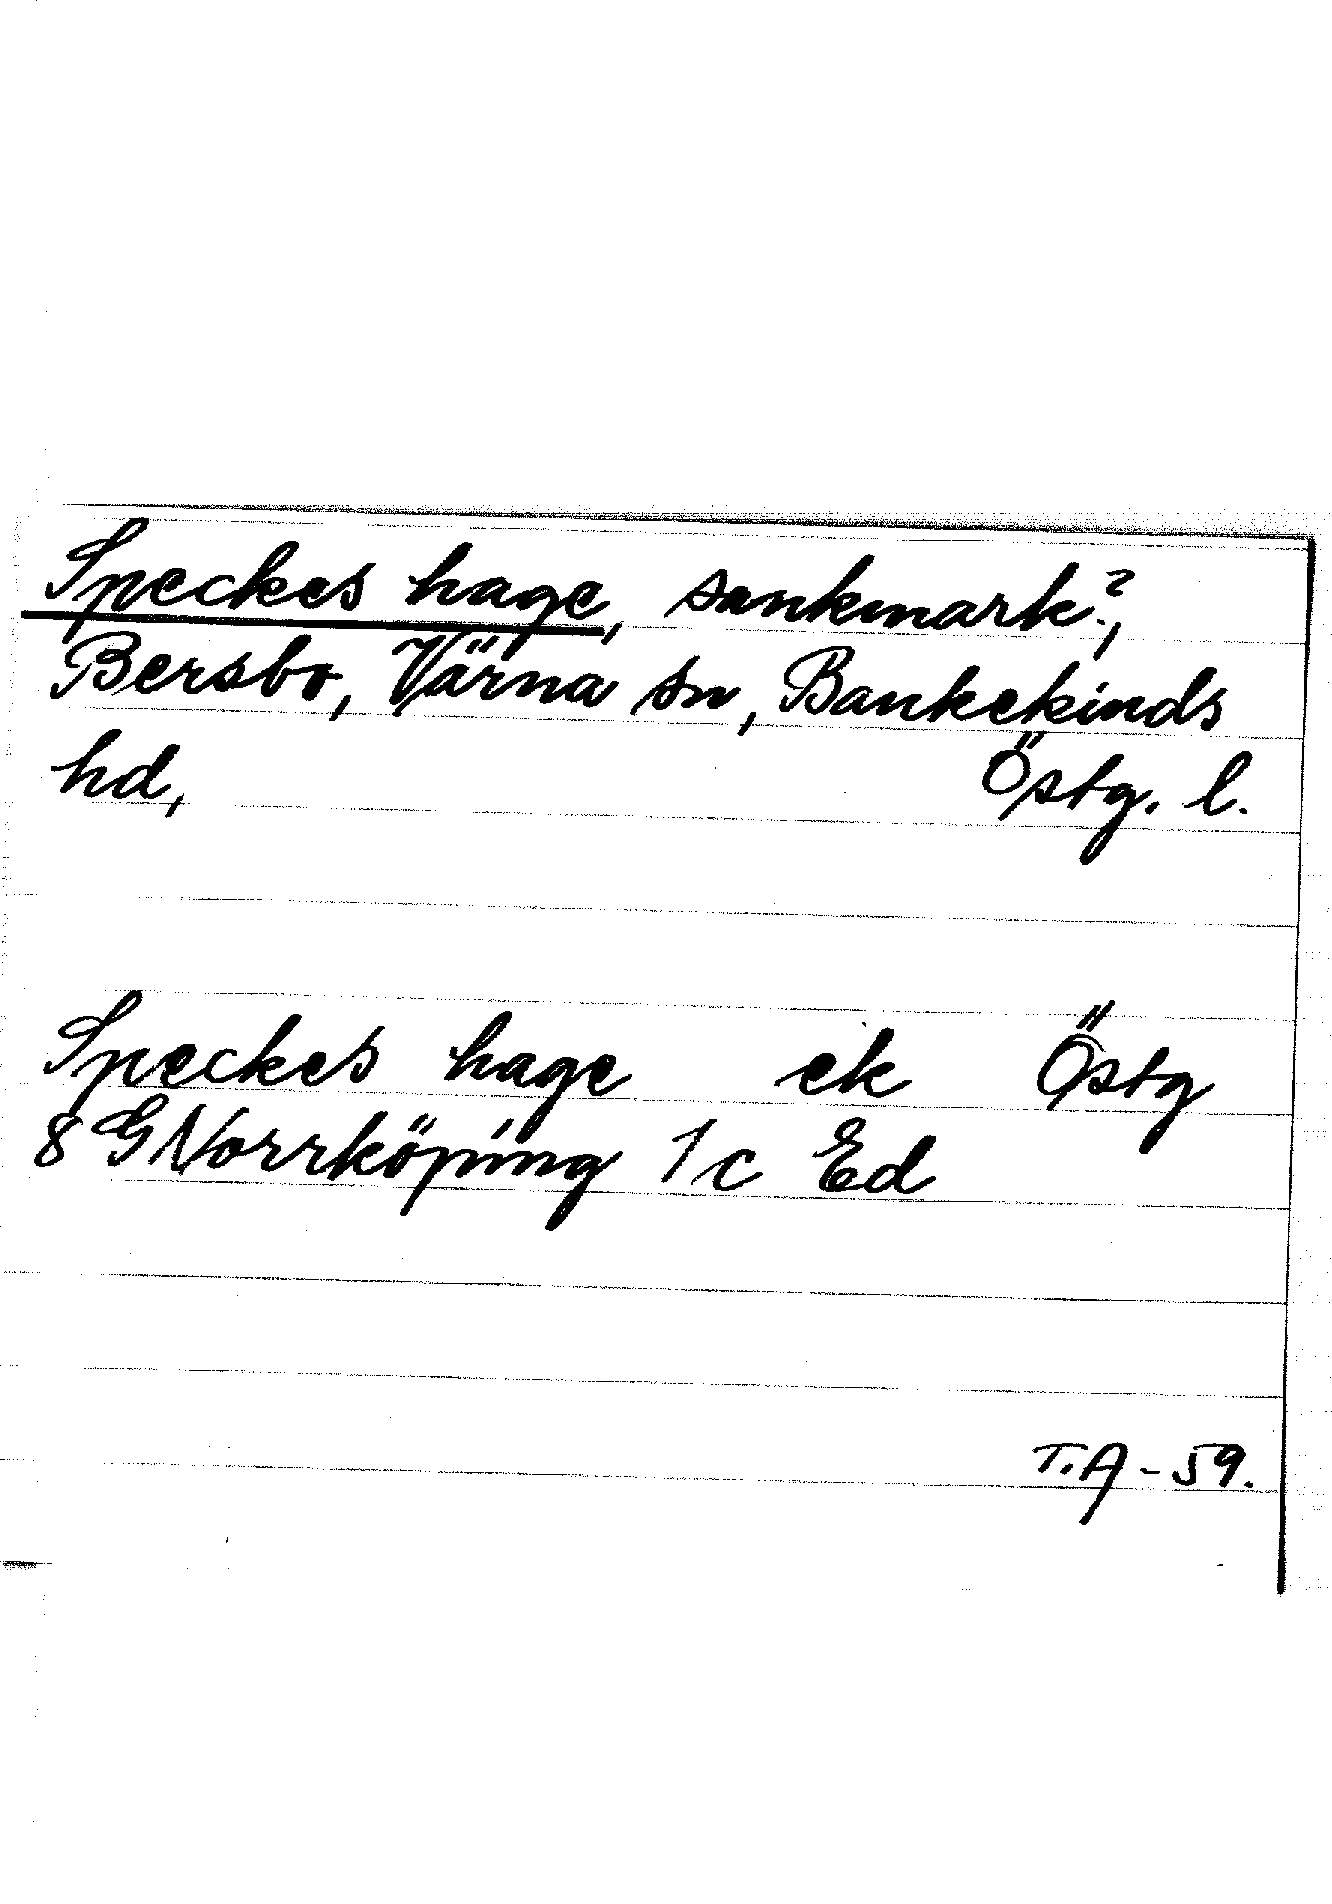 Speckes hage, sankmark?,
Bersbo, Värna sn, Bankekinds
hd, Östg. l.
Speckes hage ek Östg
8 G Norrköping 1c Ed
T.A - 59.